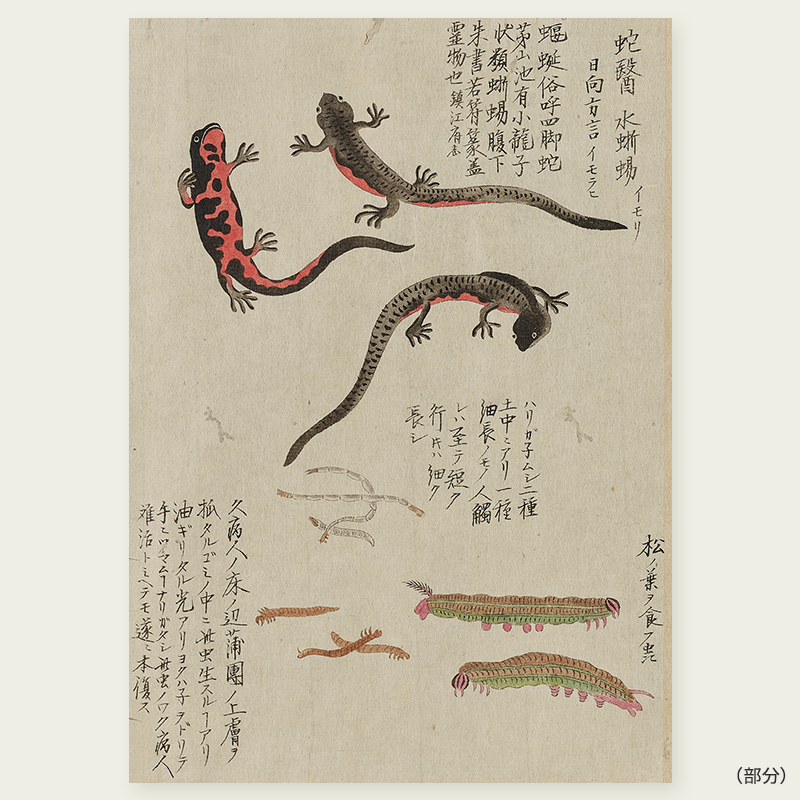 蛇醫 水蜥蜴 イモリ
日向方言 イモラヒ
蝘蜓俗呼四脚蛇
茅山池有小龍子
状類蜥蜴腹下
朱書若符篆盖
霊物也 鎮江府志
ハリガ子ムシ二種
土中ニアリ一種
細長ノモノ人觸
レハ至テ短ク
行片ハ細ク
長シ
松ノ葉ヲ食フ虫
久病人ノ床ノ辺蒲團ノ上膚ヲ
抵タルゴミノ中ニ此虫生スルヿアリ
油ギリタル光アリヨクハ子ヲドリテ
手ニツマムヿナリガタシ此虫ノワク病人
難治トミヘテモ遂ニ本復ス
(部分)